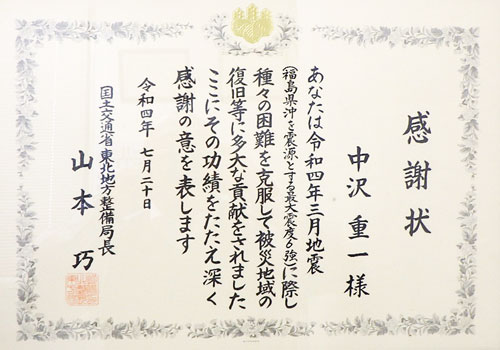 感謝状
中沢重一様
あなたは令和四年三月地震
(福島県沖を震源とする最大震度6強)に際し
種々の困難を克服して被災地域の
復旧等に多大な貢献をされました
ここにその功績をたたえ深く
感謝の意を表します
令和四年 七月二十日
国土交通省 東北地方整備局長
山本 巧